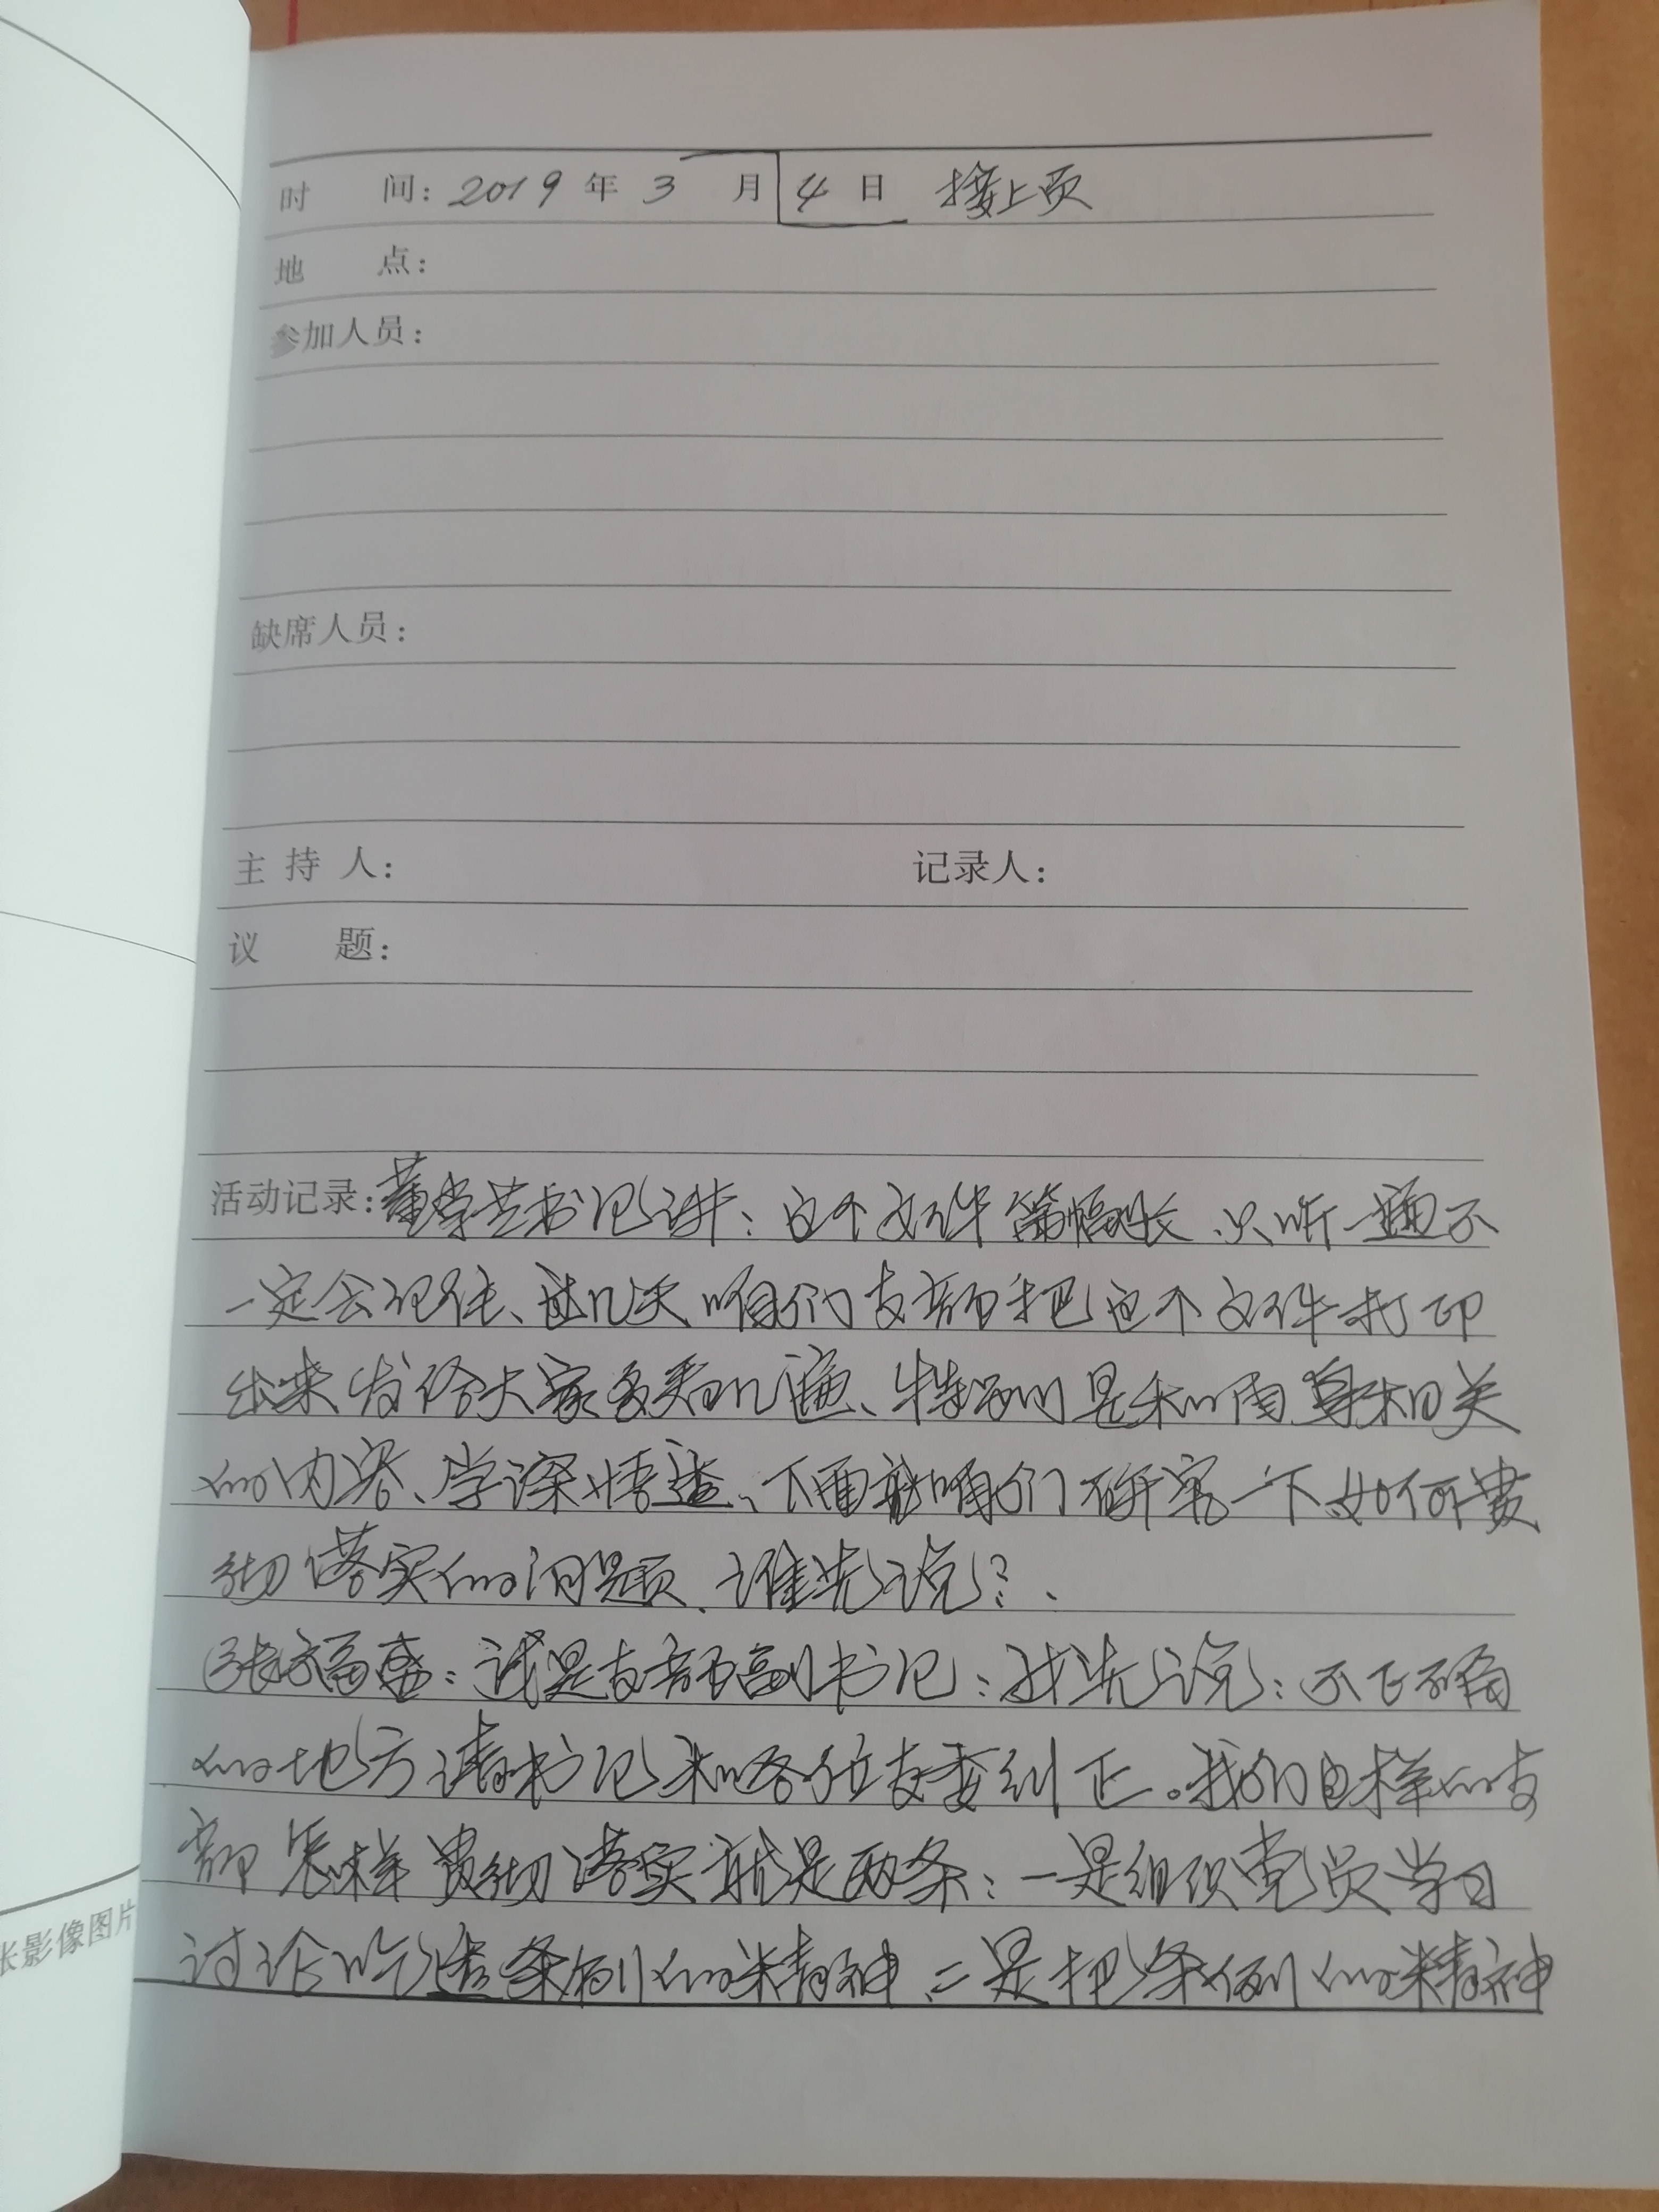 时 间：2019年3月4日 接上页
地 点：
参加人员：
缺席人员：
主 持 人： 记录人：
议 题：
活动记录：董学芝书记讲：这个文件篇幅长、只听一遍不
一定会记住、过几天咱们支部把这个文件打印
出来发给大家多看几遍、特别是和咱身相关
的内容、学深悟透、下面就咱们研究一下如何贯
彻落实的问题、谁先说？、
张福盛：我是支部副书记：我先说：不正确
的地方请书记和各位支委纠正。我们这样的支
部怎样贯彻落实就是两条：一是组织党员学习
讨论吃透条例的精神、二是把条例的精神
张影像图片